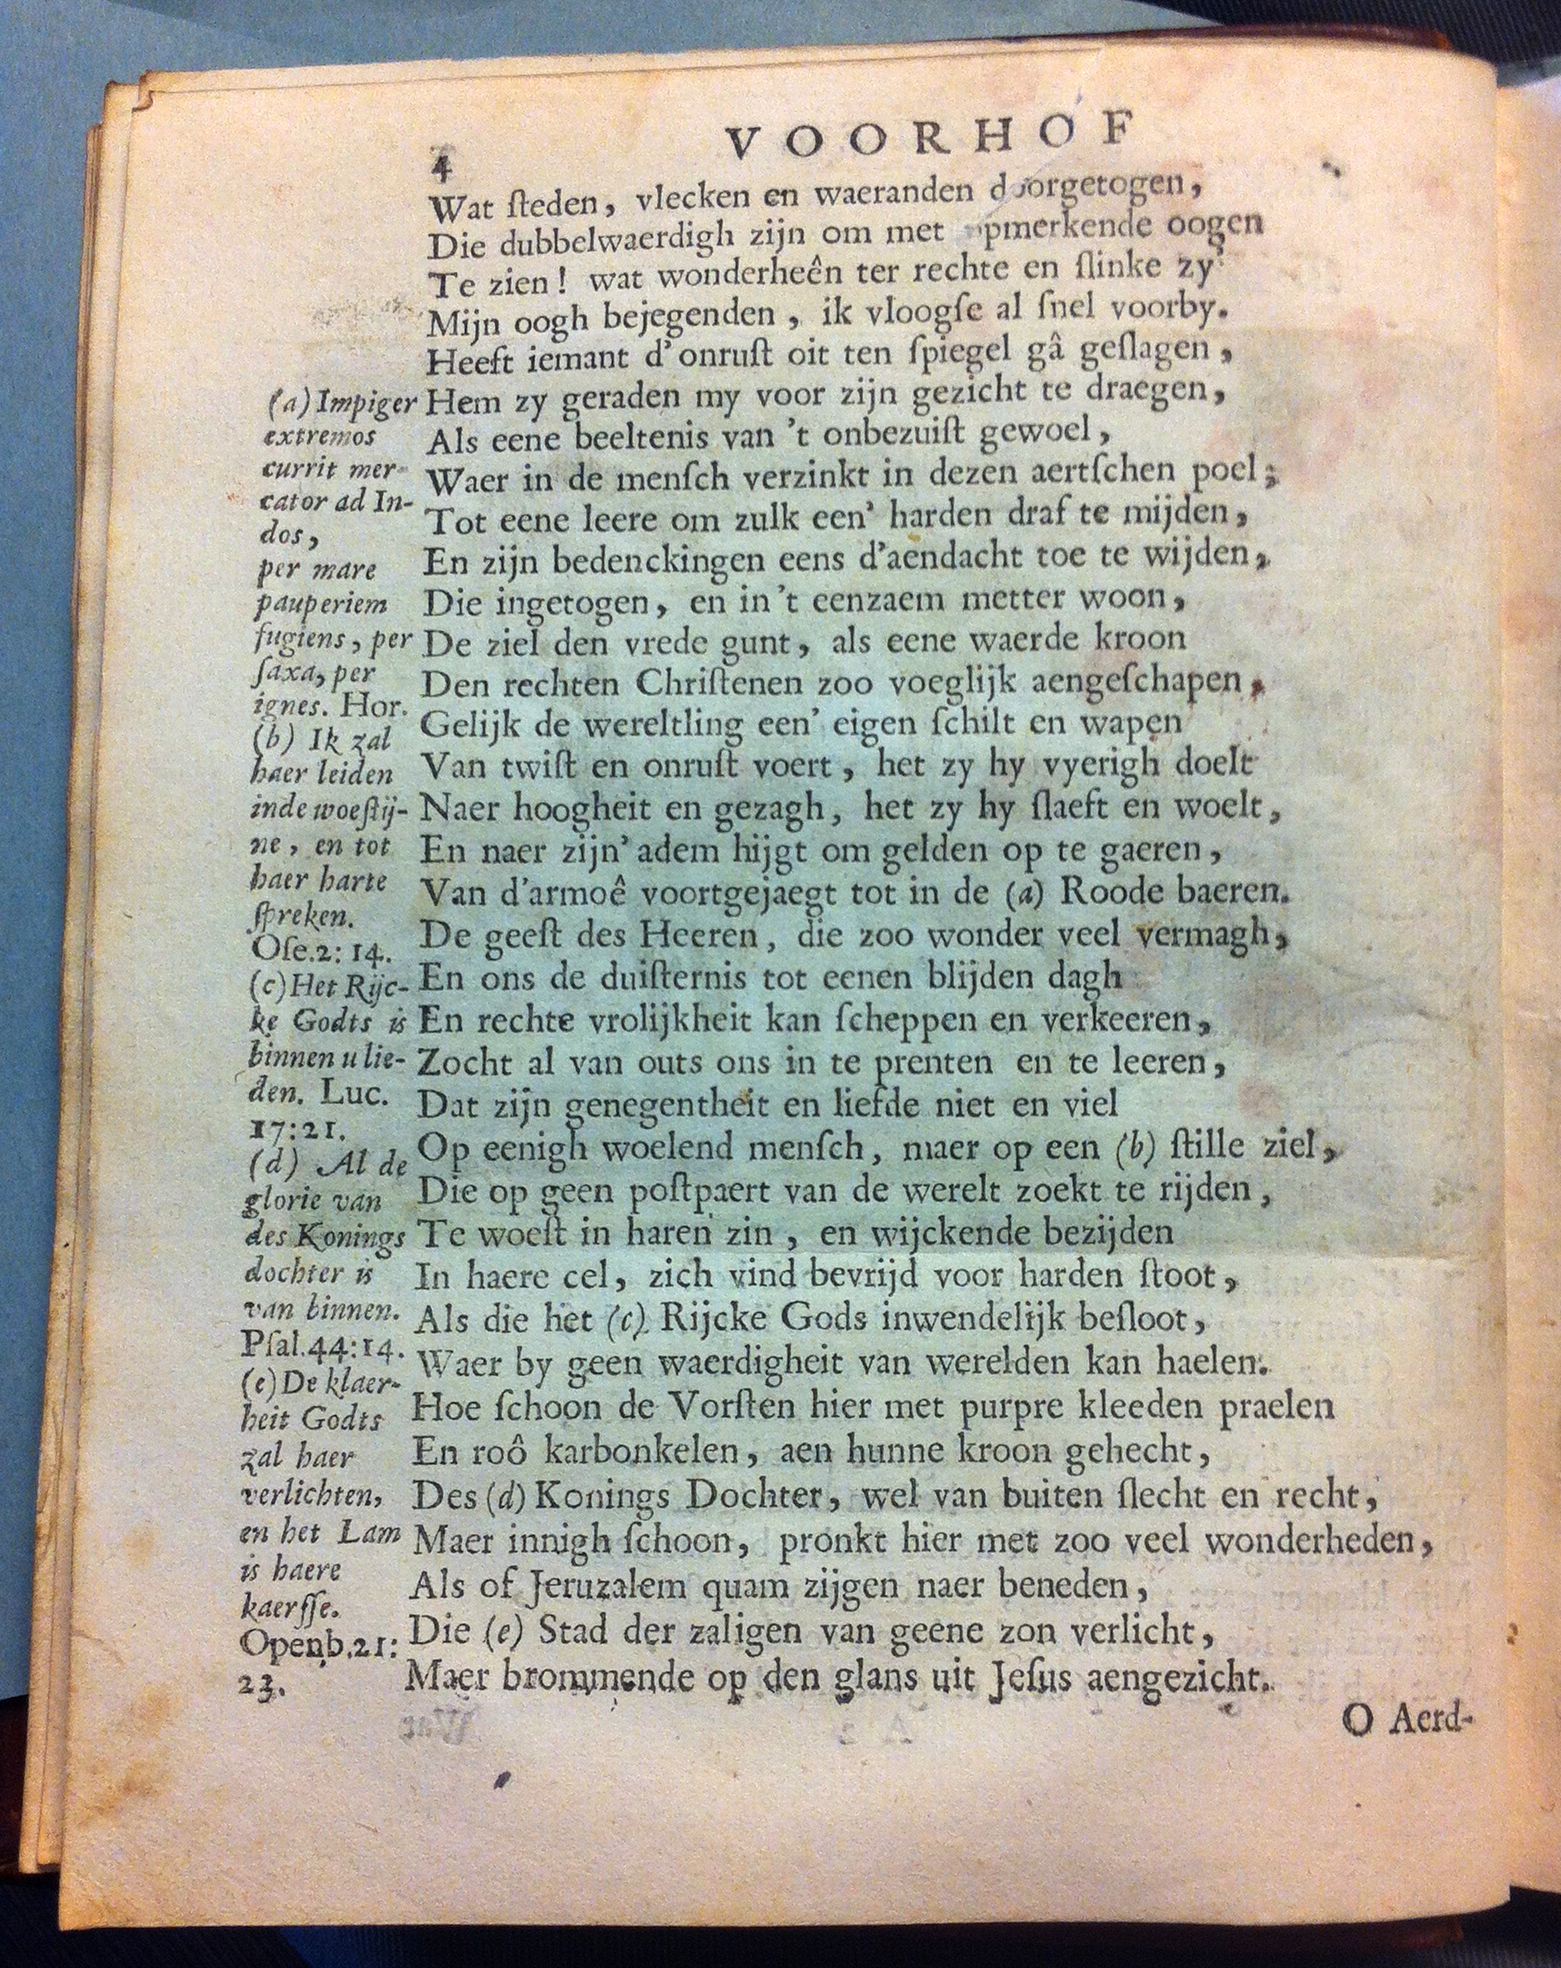 4
VOORHOF
Wat ſteden, vlecken en waeranden doorgetogen,
Die dubbelwaerdigh zijn om met opmerkende oogen
Te zien! wat wonderheên ter rechte en ſlinke zy'
Mijn oogh bejegenden, ik vloogſe al ſnel voorby.
Heeft iemant d'onruſt oit ten ſpiegel gâ geſlagen,
Hem zy geraden my voor zijn gezicht te draegen,
Als eene beeltenis van 't onbezuiſt gewoel,
Waer in de menſch verzinkt in dezen aertſchen poel;
Tot eene leere om zulk een' harden draf te mijden,
En zijn bedenckingen eens d'aendacht toe te wijden,
Die ingetogen, en in 't eenzaem metter woon,
De ziel den vrede gunt, als eene waerde kroon
Den rechten Chriſtenen zoo voeglijk aengeſchapen,
Gelijk de wereltling een' eigen ſchilt en wapen
Van twiſt en onruſt voert, het zy hy vyerigh doelt
Naer hoogheit en gezagh, het zy hy ſlaeft en woelt,
En naer zijn' adem hijgt om gelden op te gaeren,
Van d'armoê voortgejaegt tot in de (a) Roode baeren.
De geeſt des Heeren, die zoo wonder veel vermagh,
En ons de duiſternis tot eenen blijden dagh
En rechte vrolijkheit kan ſcheppen en verkeeren,
Zocht al van outs ons in te prenten en te leeren,
Dat zijn genegentheit en liefde niet en viel
Op eenigh woelend menſch, maer op een (b) ſtille ziel,
Die op geen poſtpaert van de werelt zoekt te rijden,
Te woeſt in haren zin, en wijckende bezijden
In haere cel, zich vind bevrijd voor harden ſtoot,
Als die het (c) Rijcke Gods inwendelijk beſloot,
Waer by geen waerdigheit van werelden kan haelen.
Hoe ſchoon de Vorſten hier met purpre kleeden praelen
En roô karbonkelen, aen hunne kroon gehecht,
Des (d) Konings Dochter, wel van buiten ſlecht en recht,
Maer innigh ſchoon, pronkt hier met zoo veel wonderheden,
Als of Jeruzalem quam zijgen naer beneden,
Die (e) Stad der zaligen van geene zon verlicht,
Maer brommende op den glans uit Jeſus aengezicht.
O Aerd-
(a) Impiger
extremos
currit mer-
cator ad In-
dos,
per mare
pauperiem
fugiens, per
ſaxa, per
ignes. Hor.
(b) Ik zal
haer leiden
inde woeſtij-
ne, en tot
haer harte
ſpreken.
Oſe. 2: 14.
(c) Het Rijc-
ke Godts is
binnen u lie-
den. Luc.
17:21.
(d) Al de
glorie van
des Konings
dochter is
van binnen.
Pſal. 44:14.
(e) De klaer-
heit Godts
zal haer
verlichten,
en het Lam
is haere
kaerſſe.
Openb. 21:
23.